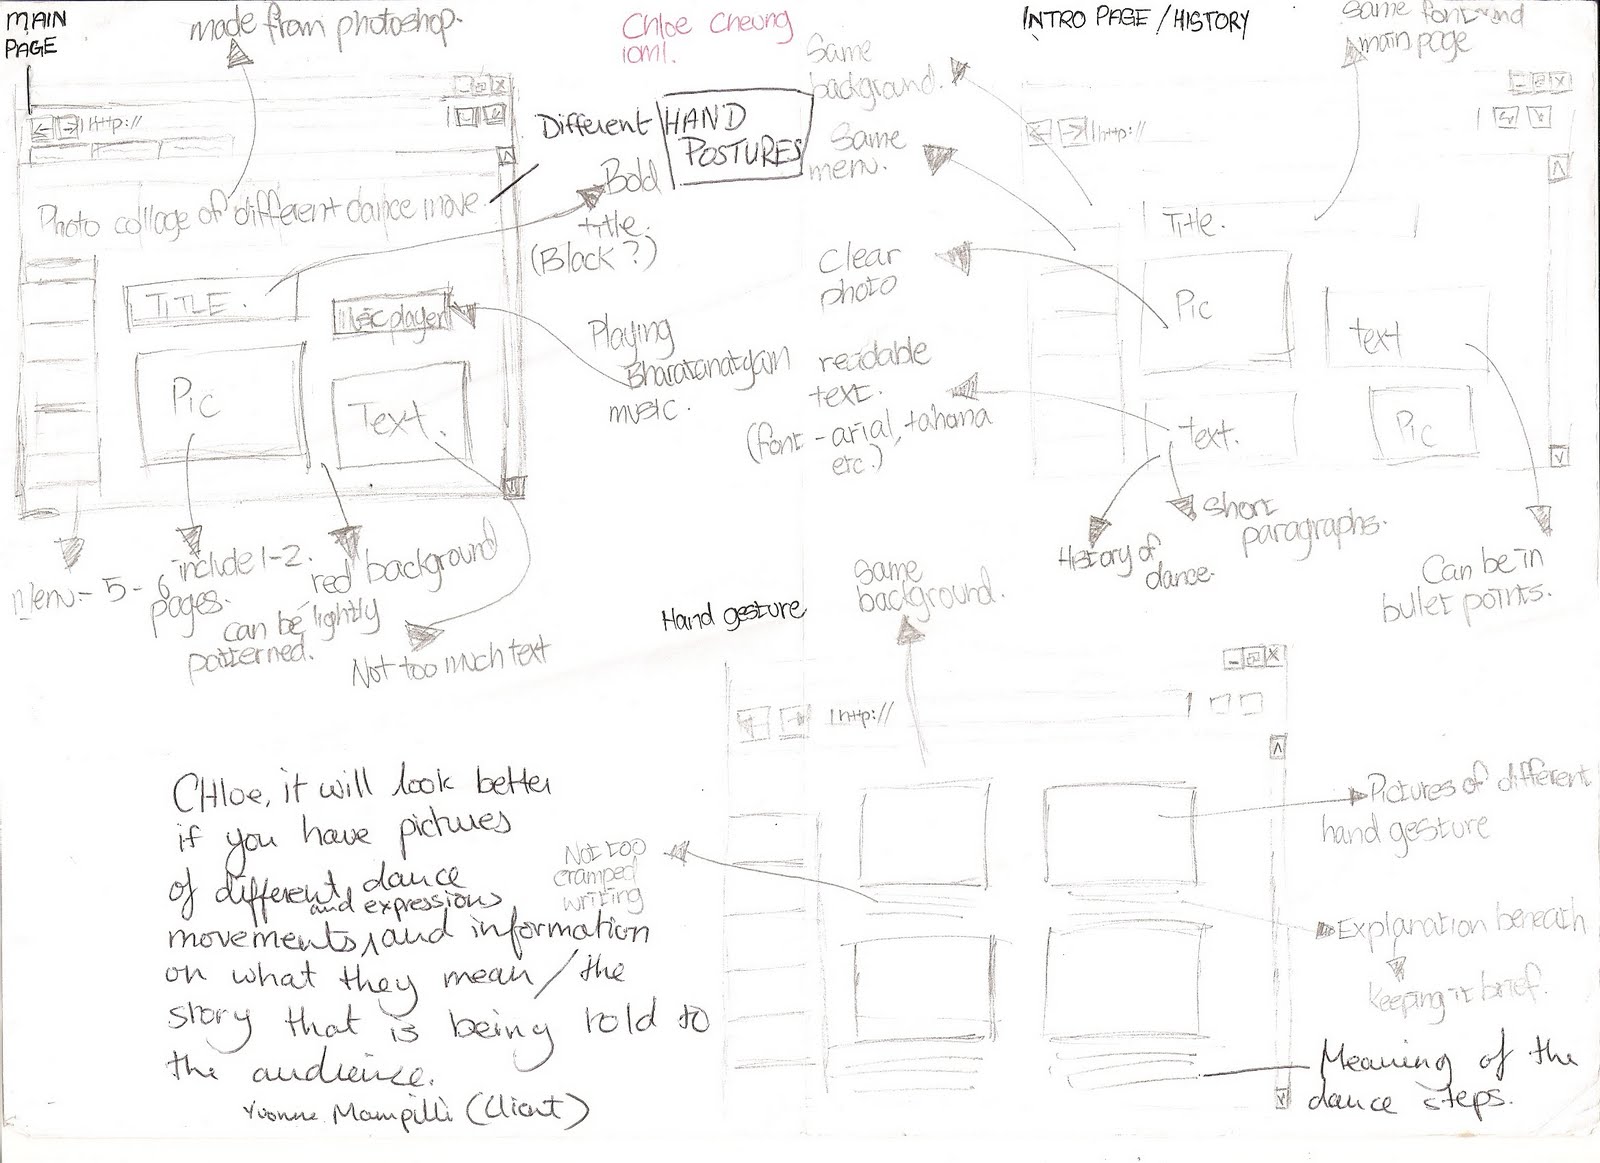 MAIN
PAGE
made from photoshop.
Chloe Cheung
10M1.
http://
Photo collage of different dance move
Different
HAND
POSTURES
Bold
title.
(Black?)
TITLE.
player
Playing
Bharatanatyam
music.
Pic
Text.
Menu - 5 - 6
pages.
include 1-2.
red background
can be lightly
patterned.
Not too much text
INTRO PAGE / HISTORY
Same font and
main page
Same
background.
Same
menu.
http://
Title.
Clear
photo
Pic
text
readable
text.
(font - arial, tahoma
etc.)
text.
Pic
History of
dance.
Short
paragraphs.
Can be in
bullet points.
Hand gesture
Same
background.
http://
Pictures of different
hand gesture
Not too
cramped
writing
Explanation beneath
Keeping it brief.
Meaning of the
dance steps.
CHloe, it will look better
if you have pictures
of different dance
and expressions
movements, and information
on what they mean / the
story that is being told to
the audience.
Yvonne Mampilli (Client)